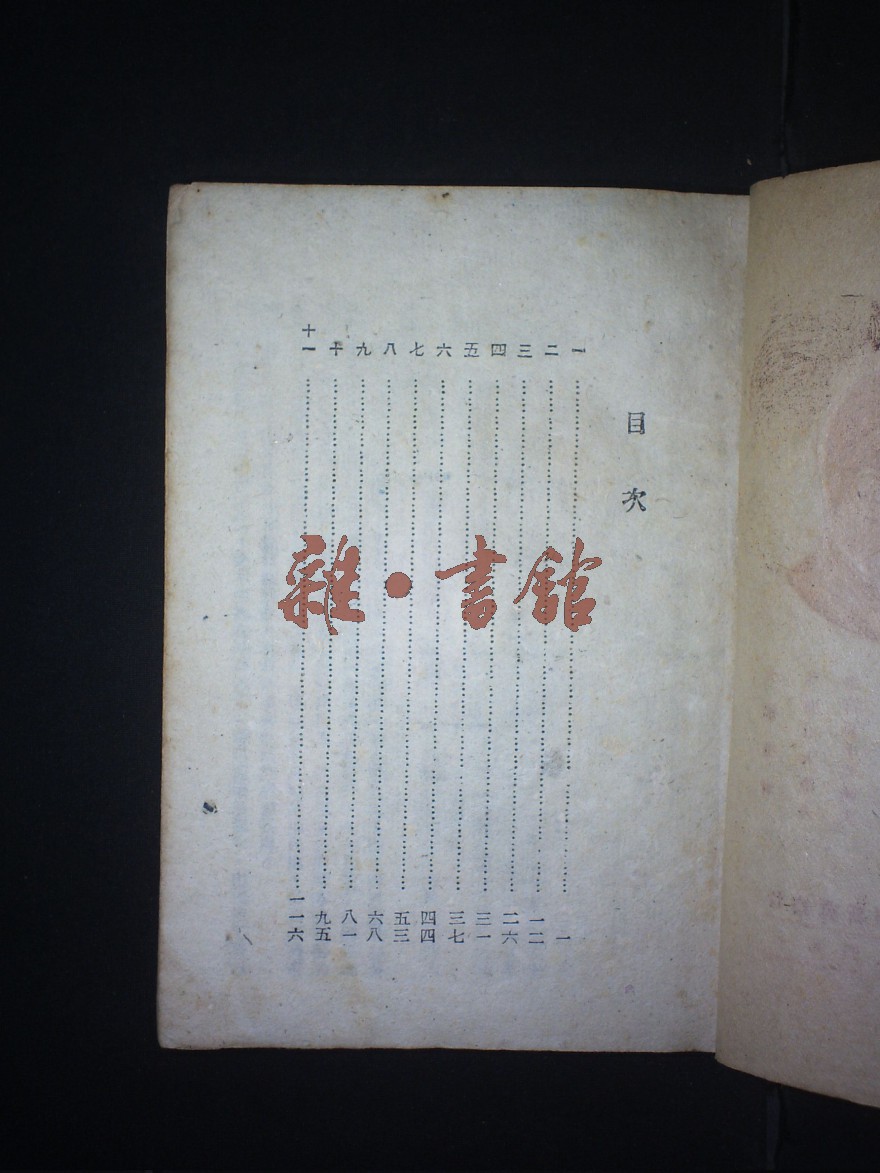 目次
一……一
二……一二
三……二六
四……三一
五……三七
六……四四
七……五三
八……六八
九……八一
十……九五
十一……一一六
雜·書館